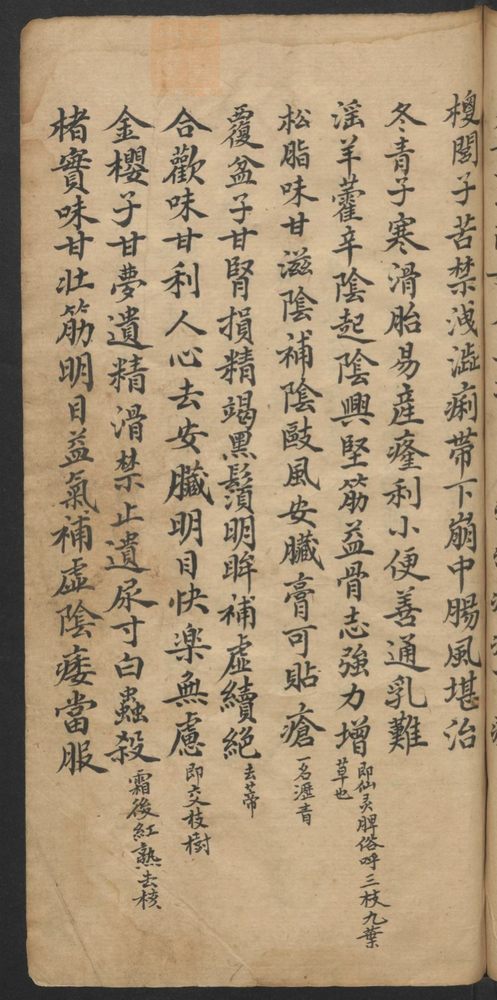 榎閭子苦禁洩澁痢帶下崩中腸風堪治
冬青子寒滑胎易産癃利小便善通乳難
滛羊藿辛陰起陰興堅筋益骨志強力増 即仙灵脾俗呼三枝九葉草也
松脂味甘滋陰補陰敺風安臓膏可貼瘡 一名瀝青
覆盆子甘腎損精竭黒鬚明眸補虚續絶 去蒂
合歡味甘利人心去安臓明目快楽無慮 即交枝樹
金櫻子甘夢遺精滑禁止遺尿寸白蟲殺 霜後紅熟去核
楮實味甘壮筋明目益氣補虚陰痿當服